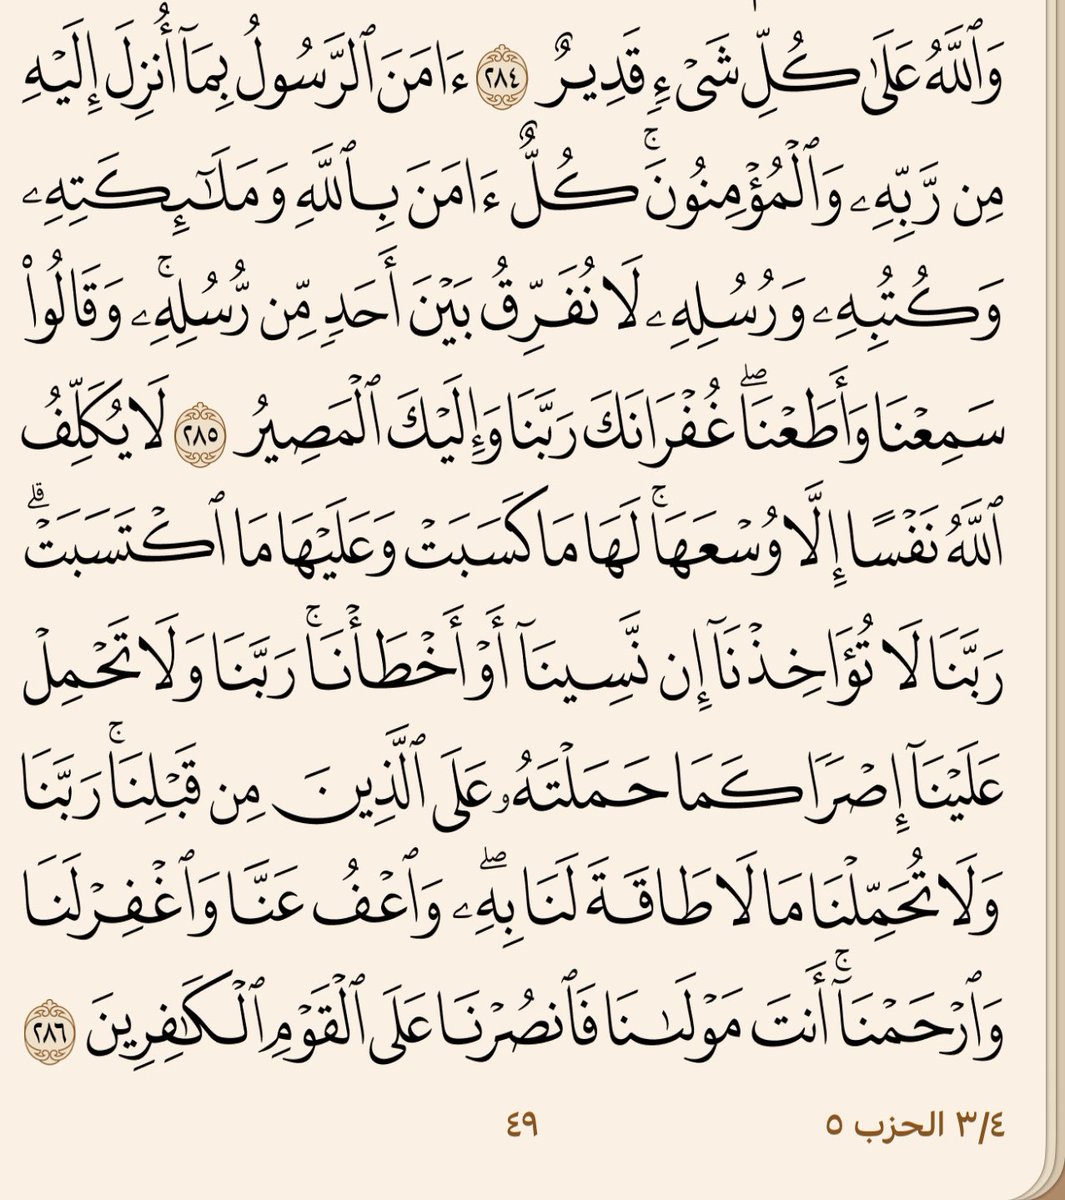 وَٱللَّهُ عَلَىٰ كُلِّ شَىْءٍ قَدِيرٌ ٢٨٤ ءَامَنَ ٱلرَّسُولُ بِمَآ أُنزِلَ إِلَيْهِ
مِن رَّبِّهِۦ وَٱلْمُؤْمِنُونَ ۚ كُلٌّ ءَامَنَ بِٱللَّهِ وَمَلَـٰٓئِكَتِهِۦ
وَكُتُبِهِۦ وَرُسُلِهِۦ لَا نُفَرِّقُ بَيْنَ أَحَدٍ مِّن رُّسُلِهِۦ ۚ وَقَالُوا۟
سَمِعْنَا وَأَطَعْنَا ۖ غُفْرَانَكَ رَبَّنَا وَإِلَيْكَ ٱلْمَصِيرُ ٢٨٥ لَا يُكَلِّفُ
ٱللَّهُ نَفْسًا إِلَّا وُسْعَهَا ۚ لَهَا مَا كَسَبَتْ وَعَلَيْهَا مَا ٱكْتَسَبَتْ ۗ
رَبَّنَا لَا تُؤَاخِذْنَآ إِن نَّسِينَآ أَوْ أَخْطَأْنَا ۚ رَبَّنَا وَلَا تَحْمِلْ
عَلَيْنَآ إِصْرًا كَمَا حَمَلْتَهُۥ عَلَى ٱلَّذِينَ مِن قَبْلِنَا ۚ رَبَّنَا
وَلَا تُحَمِّلْنَا مَا لَا طَاقَةَ لَنَا بِهِۦ ۖ وَٱعْفُ عَنَّا وَٱغْفِرْ لَنَا
وَٱرْحَمْنَآ ۚ أَنتَ مَوْلَىٰنَا فَٱنصُرْنَا عَلَى ٱلْقَوْمِ ٱلْكَـٰفِرِينَ ٢٨٦
٣/٤ الحزب ٥
٤٩